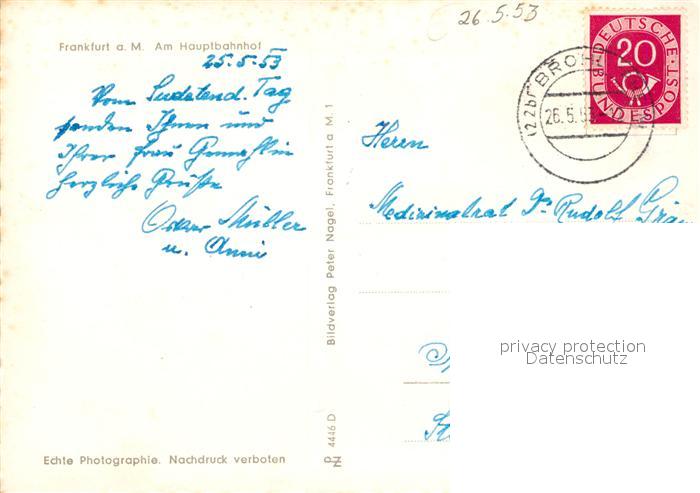 26.5.53
Frankfurt a. M. Am Hauptbahnhof
25.5.53
Vom Sudetend. Tag
senden Ihnen und
Ihrer Frau Gemahlin
herzliche Grüße
Oskar Müller
u. Anni
Bildverlag Peter Nagel, Frankfurt a M. 1
4446 D
Echte Photographie. Nachdruck verboten
DEUTSCHE
BUNDESPOST
20
(22b) BROHL
26.5.53
Herrn
Medizinalrat Dr. Rudolf
privacy protection
Datenschutz